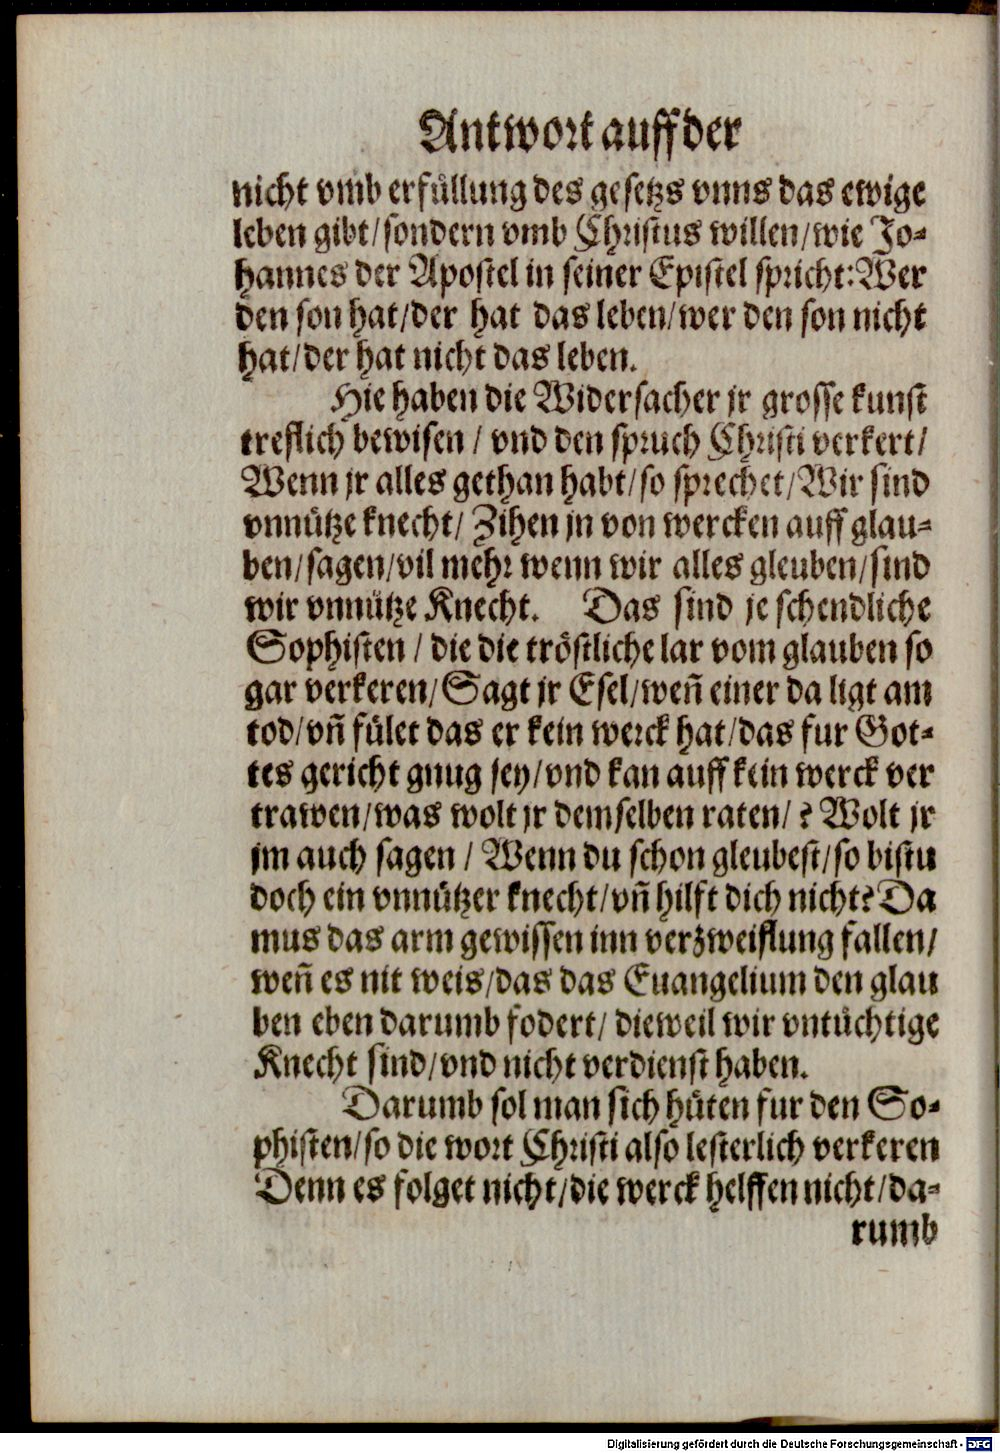 Antwort auff der
nicht vmb erfüllung des gesetzs vnns das ewige
leben gibt/sondern vmb Christus willen/wie Jo-
hannes der Apostel in seiner Epistel spricht: Wer
den son hat/der hat das leben/wer den son nicht
hat/der hat nicht das leben.
Hie haben die Widersacher jr grosse kunst
treflich bewisen / vnd den spruch Christi verkert/
Wenn jr alles gethan habt/so sprechet/Wir sind
vnnütze knecht/ Zihen jn von wercken auff glau-
ben/sagen/vil mehr wenn wir alles gleuben/sind
wir vnnütze Knecht. Das sind je schendliche
Sophisten / die die tröstliche lar vom glauben so
gar verkeren/Sagt jr Esel/weñ einer da ligt am
tod/vñ fület das er kein werck hat/das fur Got-
tes gericht gnug sey/vnd kan auff kein werck ver
trawen/was wolt jr demselben raten/? Wolt jr
jm auch sagen / Wenn du schon gleubest/so bistu
doch ein vnnützer knecht/vñ hilft dich nicht? Da
mus das arm gewissen inn verzweiflung fallen/
weñ es nit weis/das das Euangelium den glau
ben eben darumb fodert/ dieweil wir vntüchtige
Knecht sind/vnd nicht verdienst haben.
Darumb sol man sich hüten fur den So-
phisten/so die wort Christi also lesterlich verkeren
Denn es folget nicht/die werck helffen nicht/da-
rumb
Digitalisierung gefördert durch die Deutsche Forschungsgemeinschaft - DFG